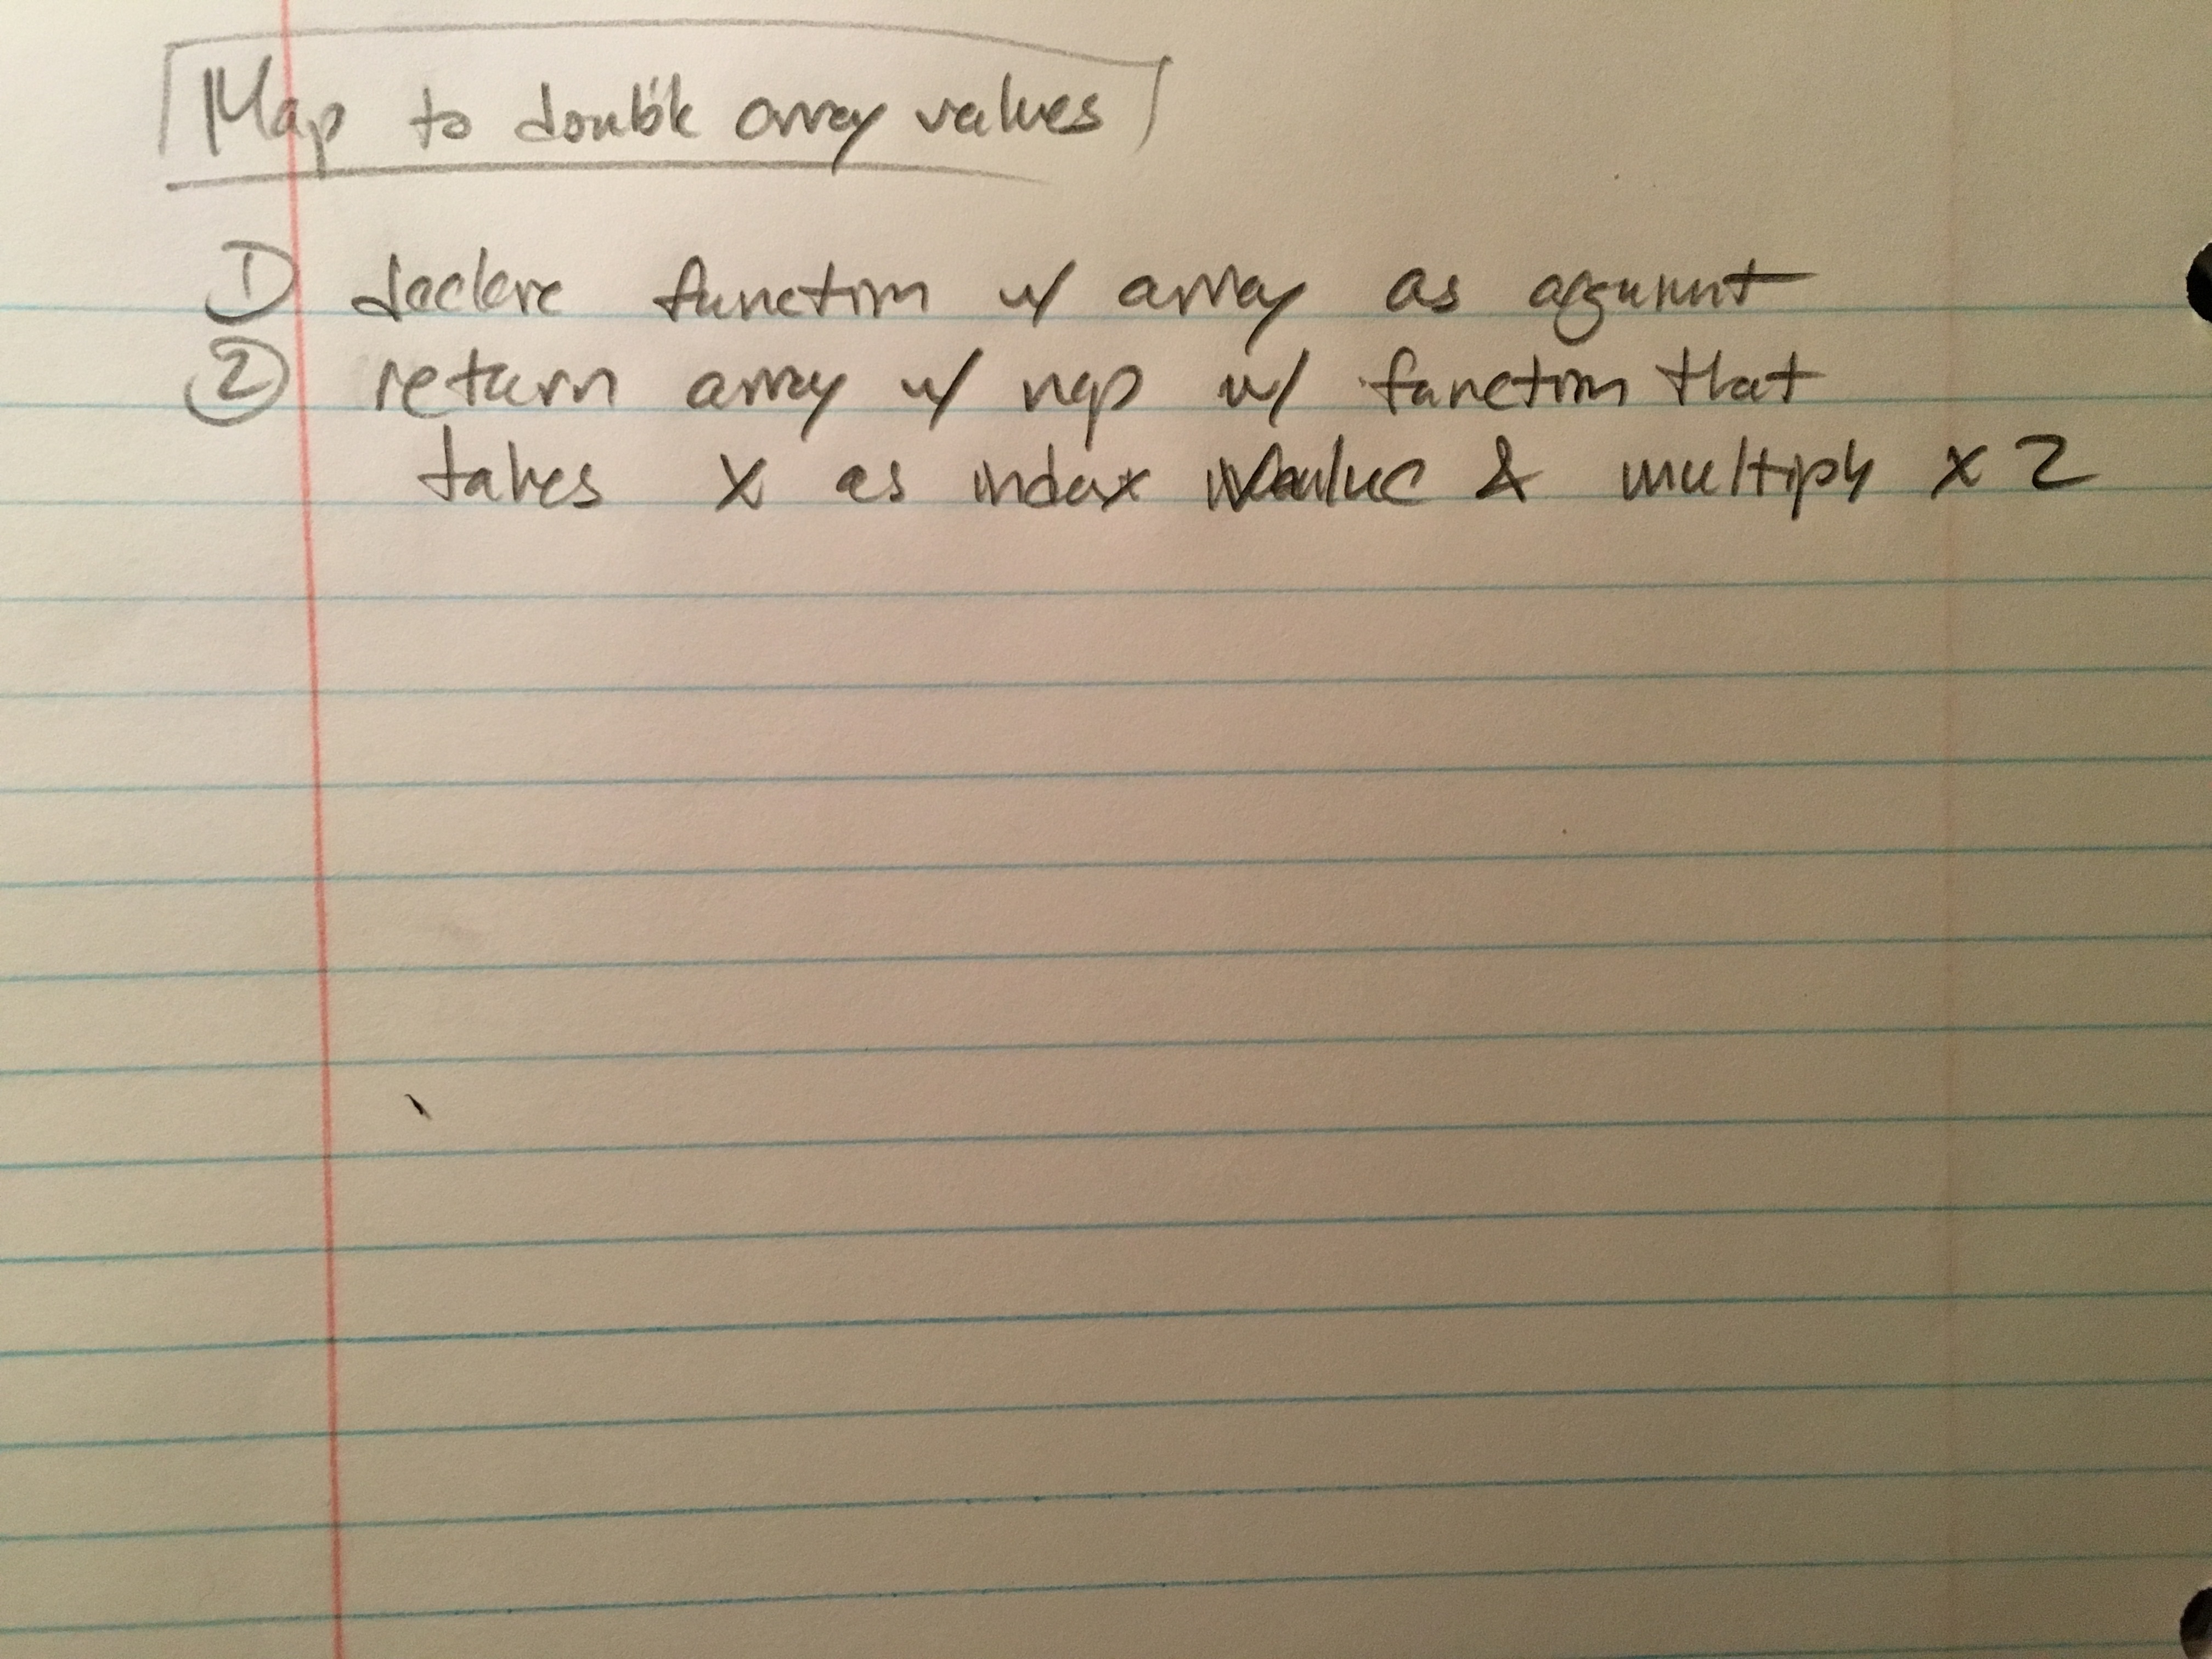 Map to double array values
① declare function w/ array as argument
② return array w/ map w/ function that
takes x as index value & multiply x 2